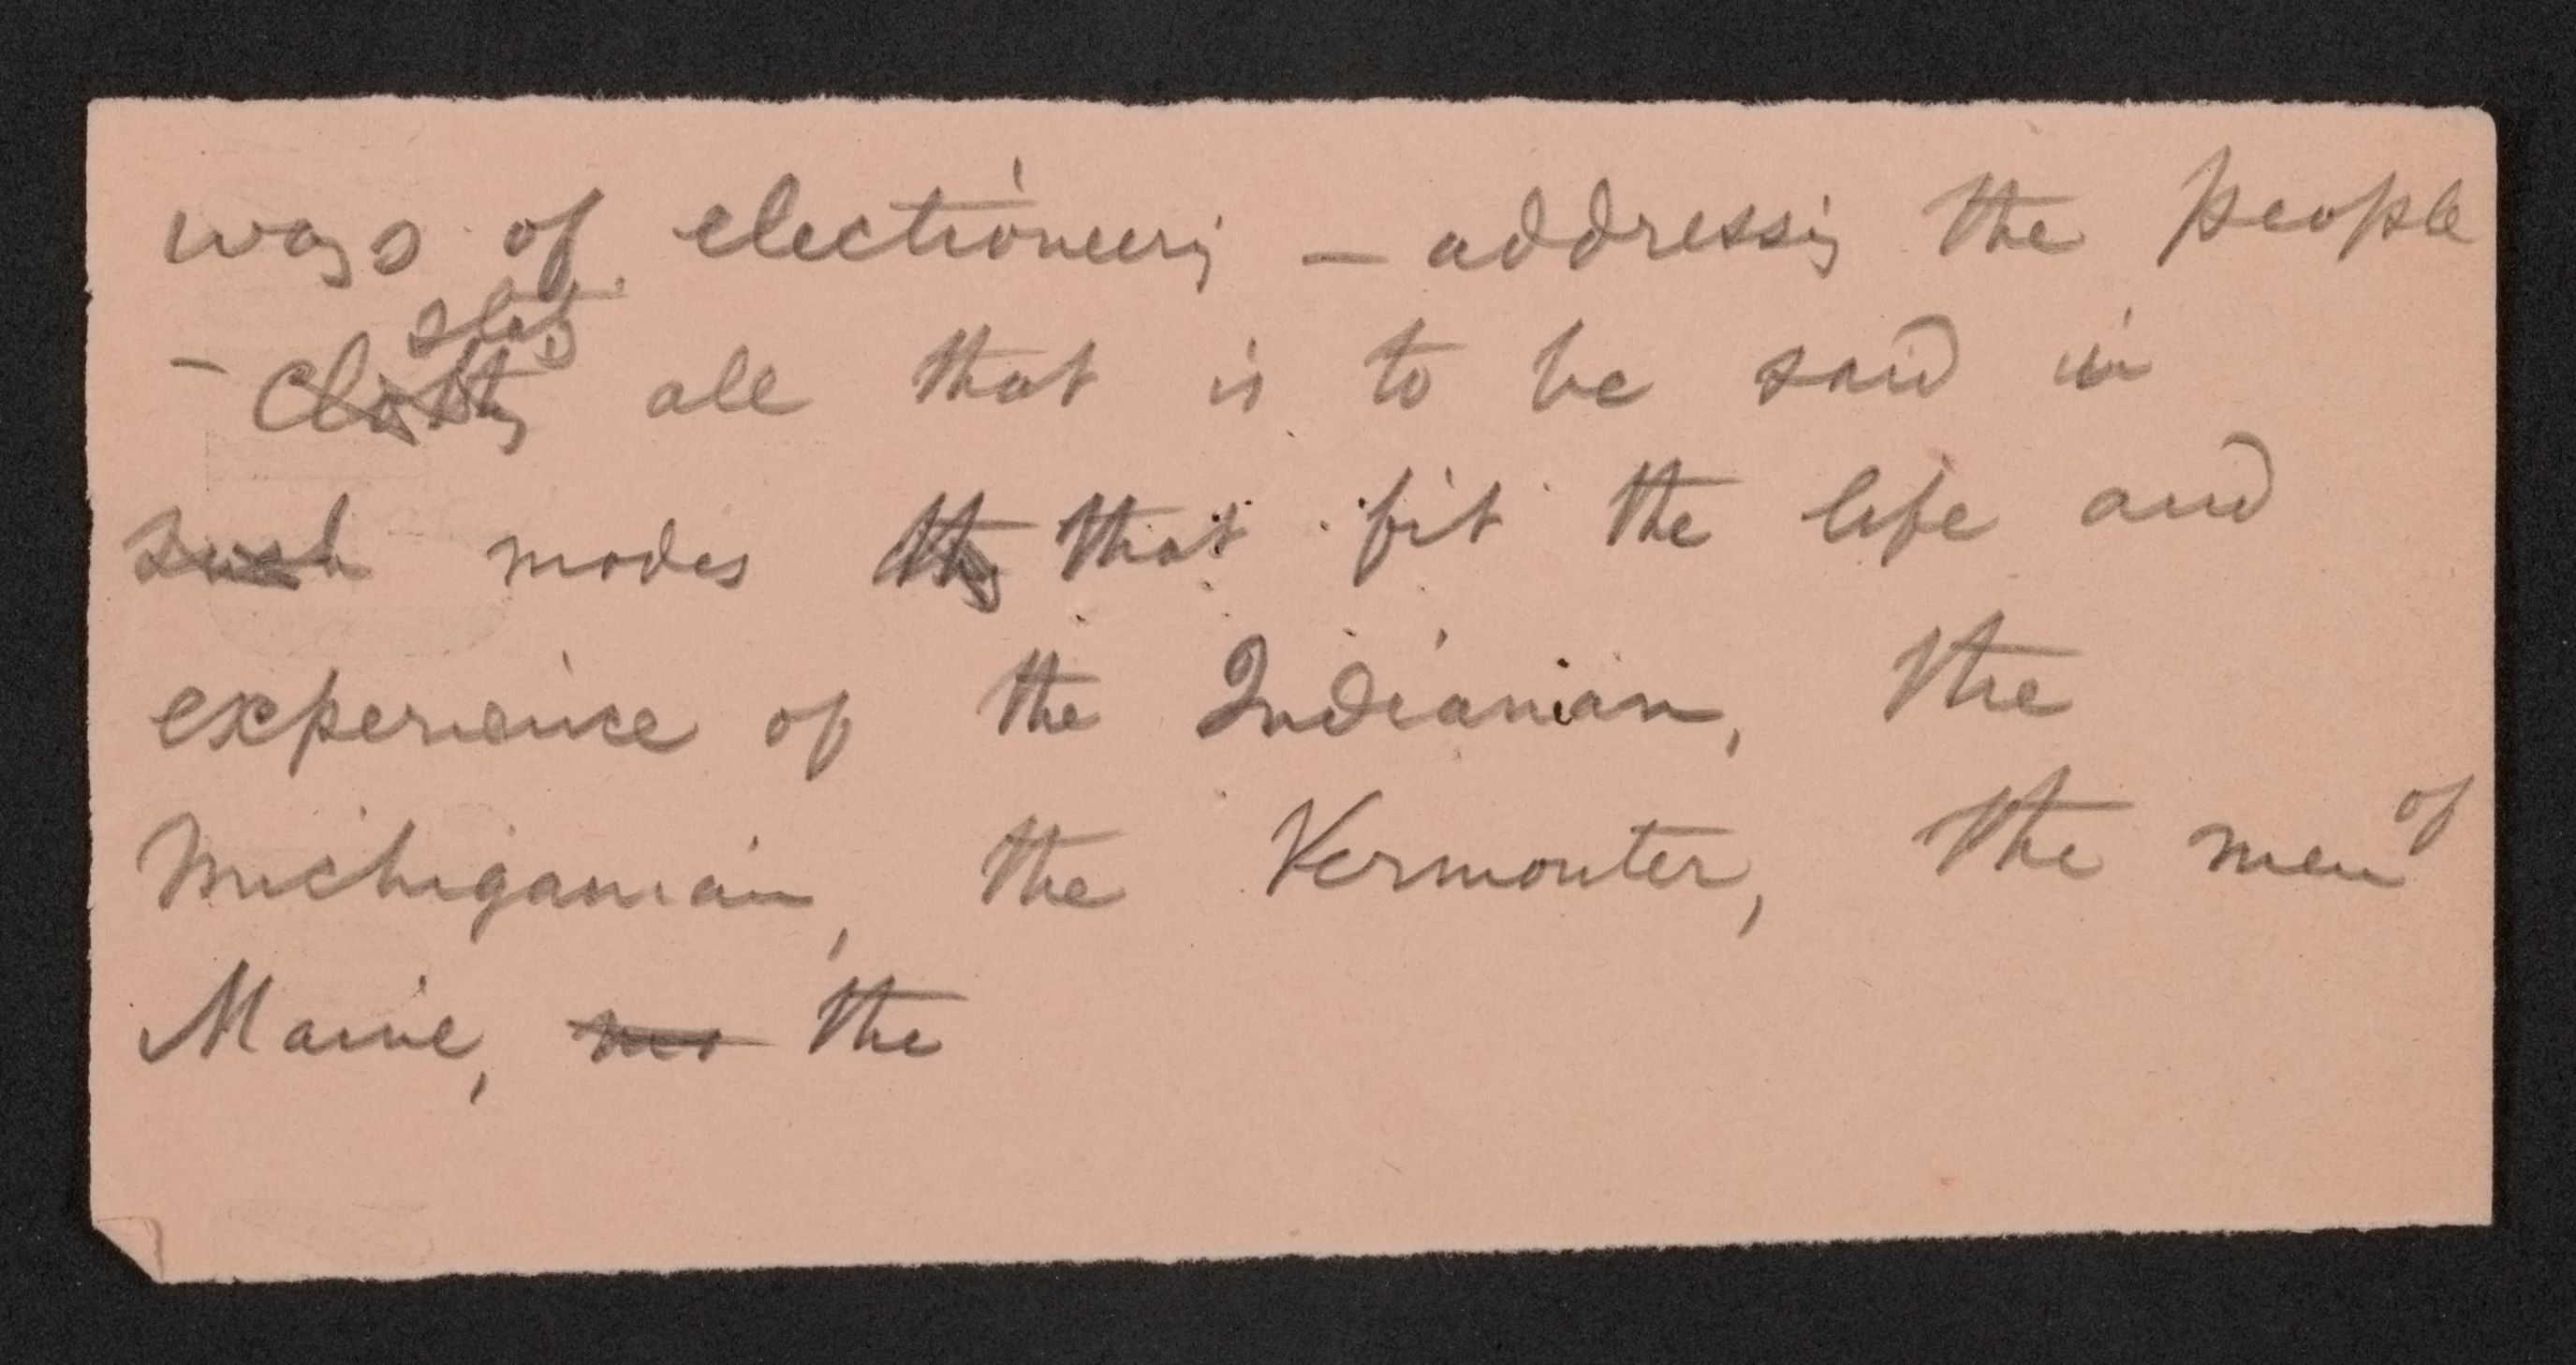 ways of electioneering — addressing the people
stating
– Clothing all that is to be said in
such modes that fit the life and
experience of the Indianian, the
Michiganian, the Vermonter, the men of
Maine, the